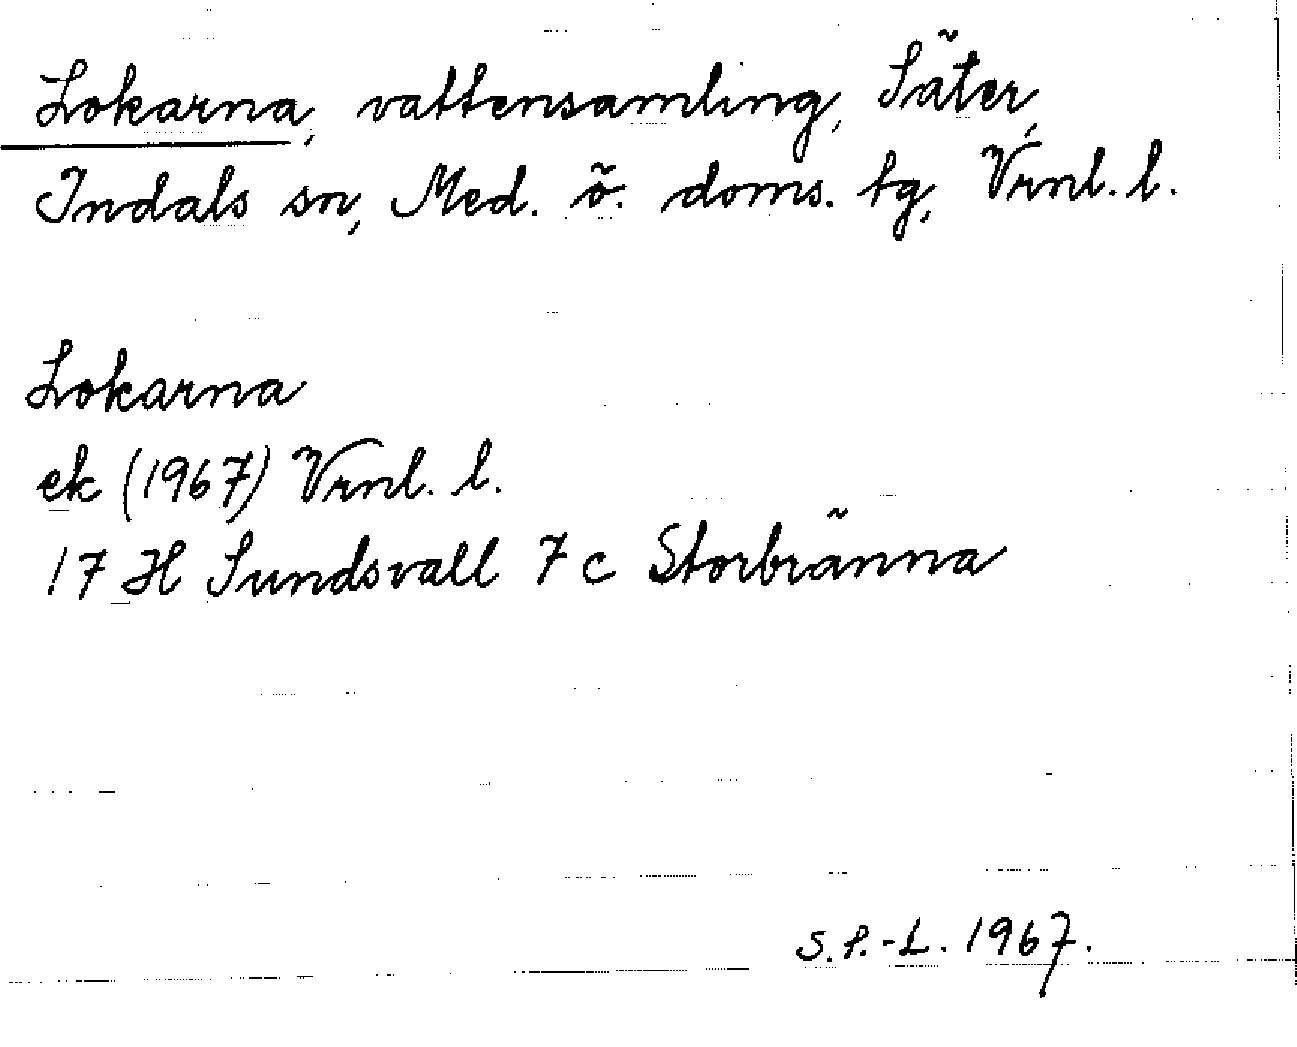 Lokarna, vattensamling, Säter,
Indals sn, Med. ö. doms. tg, Vrnl. l.
Lokarna
ek (1967) Vrnl. l.
17 H Sundsvall 7 c Storbränna
S.P.-L. 1967.